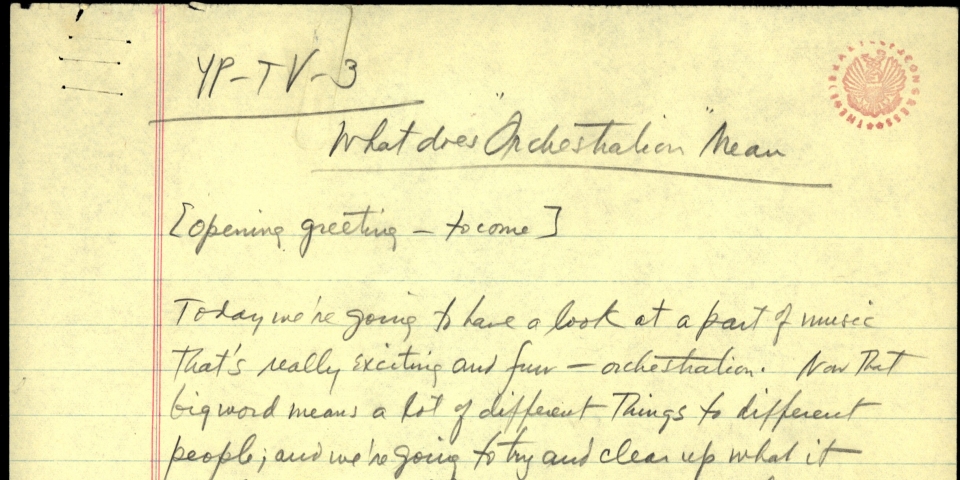 YP-TV-3
What does "Orchestration" Mean
[opening greeting – to come]
Today we're going to have a look at a part of music
that's really exciting and fun – orchestration. Now that
big word means a lot of different things to different
people; and we're going to try and clear up what it
THE LIBRARY OF CONGRESS